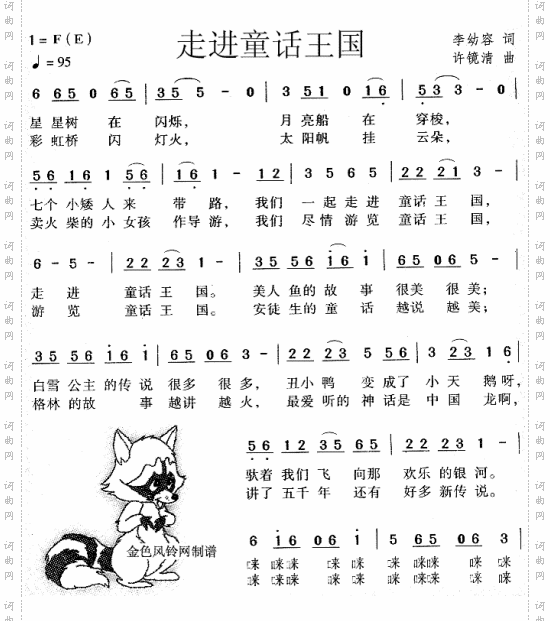 走进童话王国
1 = F ( E )
♩ = 95
李幼容 词
许镜清 曲
6 65 0 65 | 35 5 - 0 | 3 51 0 16 | 53 3 - 0 |
星 星树 在 闪烁， 月 亮船 在 穿梭，
彩 虹桥 闪 灯火， 太 阳帆 挂 云朵，
56 16 1 56 | 16 1 - 12 | 3 5 6 5 | 22 21 3 - |
七个 小矮 人 来 带 路， 我们 一 起 走 进 童话 王 国，
卖火 柴的 小 女孩 作导 游， 我们 尽 情 游 览 童话 王 国，
6 - 5 - | 22 23 1 - | 35 56 16 1 | 65 06 5 - |
走 进 童话 王 国。 美人 鱼的 故 事 很美 很 美；
游 览 童话 王 国。 安徒 生的 童 话 越说 越 美；
35 56 16 1 | 65 06 3 - | 22 23 5 56 | 3 23 1 6 |
白雪 公主 的传 说 很多 很 多， 丑小 鸭 变 成了 小 天 鹅 呀，
格林 的故 事 越讲 越 火， 最爱 听的 神 话是 中 国 龙啊，
56 12 35 65 | 22 23 1 - |
驮着 我们 飞 向那 欢乐 的银 河。
讲了 五千 年 还有 好多 新传 说。
6 16 06 1 | 5 65 06 3 |
咪 咪咪 咪 咪 咪 咪咪 咪 咪
咪 咪咪 咪 咪 咪 咪咪 咪 咪
金色风铃网制谱
词曲网